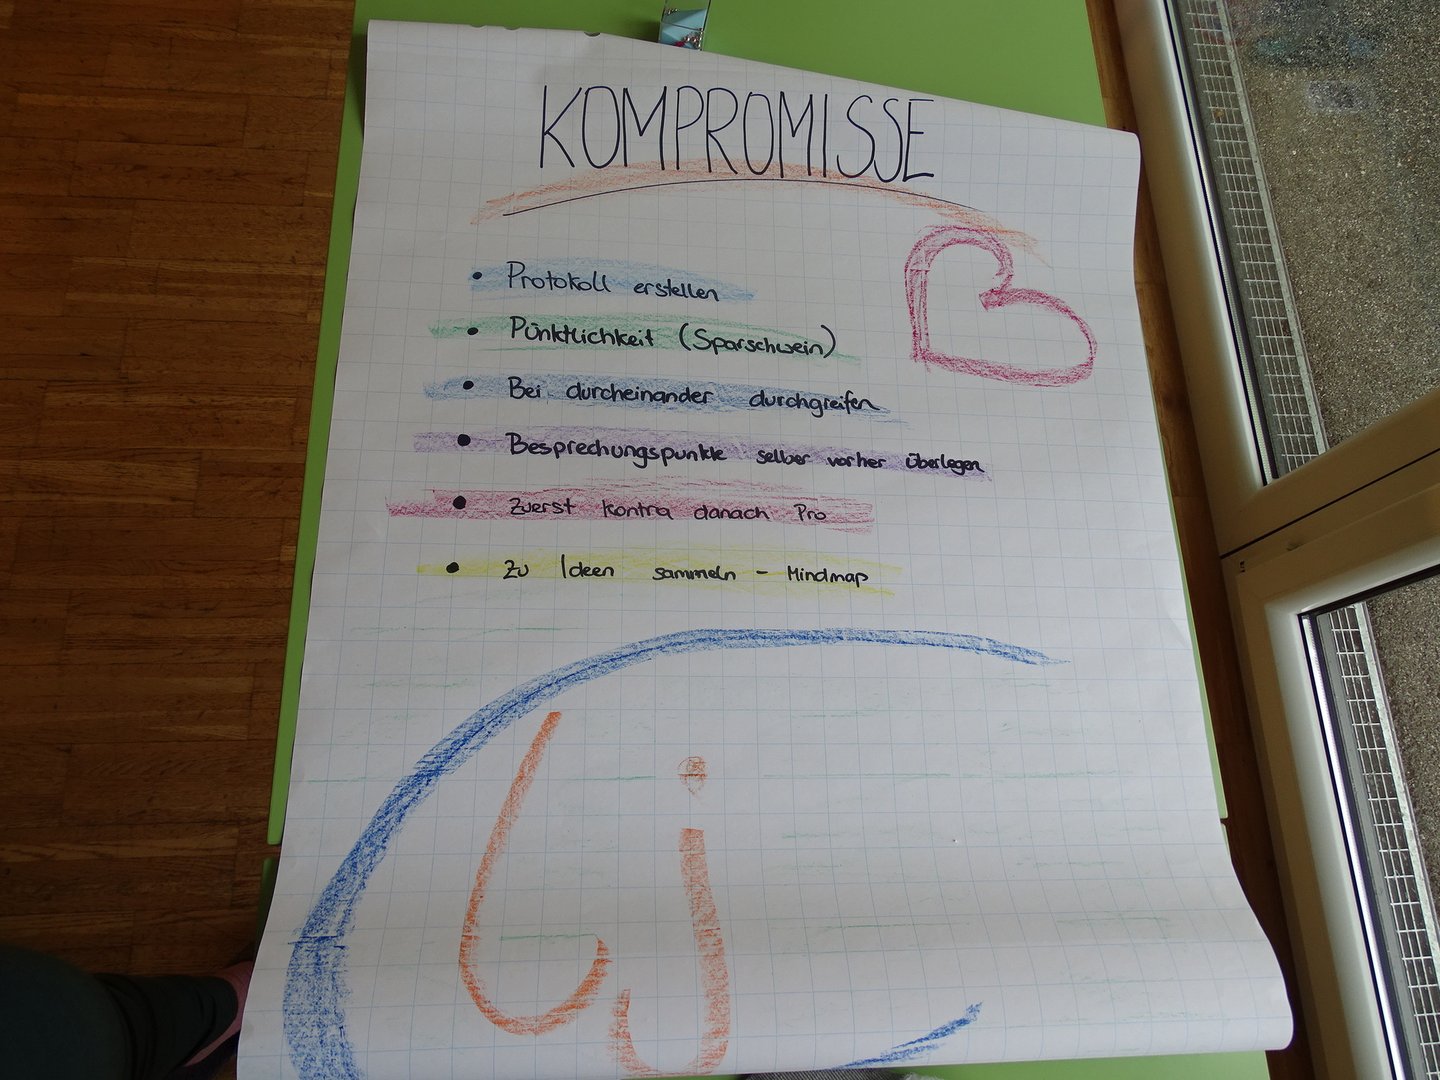 KOMPROMISSE
• Protokoll erstellen
• Pünktlichkeit (Sparschwein)
• Bei durcheinander durchgreifen
• Besprechungspunkte selber vorher überlegen
• Zuerst kontra danach Pro
• Zu Ideen sammeln - Mindmap
Lj